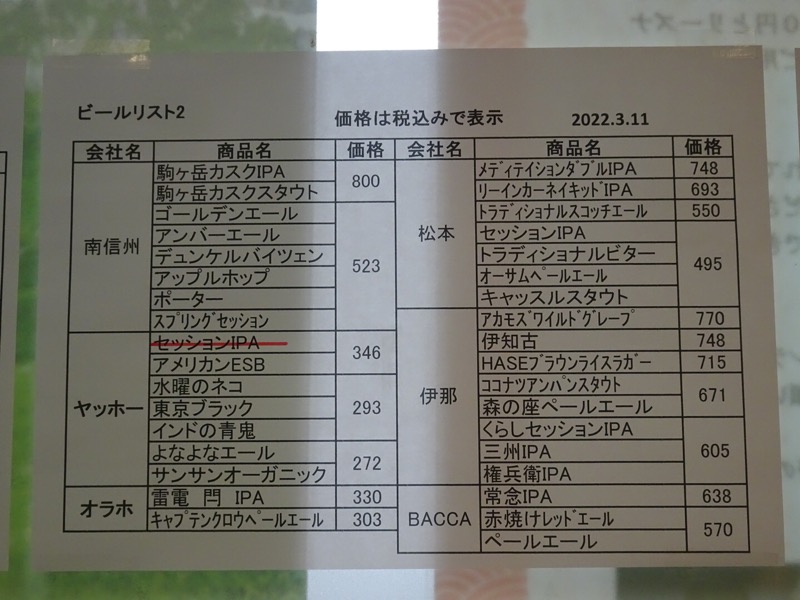 ビールリスト2 価格は税込みで表示 2022.3.11
会社名 商品名 価格
南信州
駒ヶ岳カスクIPA
駒ヶ岳カスクスタウト
800
ゴールデンエール
アンバーエール
デュンケルバイツェン
アップルホップ
ポーター
スプリングセッション
523
ヤッホー
セッションIPA
アメリカンESB
346
水曜のネコ
東京ブラック
インドの青鬼
293
よなよなエール
サンサンオーガニック
272
オラホ
雷電 閂 IPA 330
キャプテンクロウペールエール 303
会社名 商品名 価格
松本
メディテイションダブルIPA 748
リーインカーネイキッドIPA 693
トラディショナルスコッチエール 550
セッションIPA
トラディショナルビター
オーサムペールエール
キャッスルスタウト
495
伊那
アカモズワイルドグレープ 770
伊知古 748
HASEブラウンライスラガー 715
ココナツアンパンスタウト
森の座ペールエール
671
くらしセッションIPA
三州IPA
権兵衛IPA
605
BACCA
常念IPA 638
赤焼けレッドエール
ペールエール
570